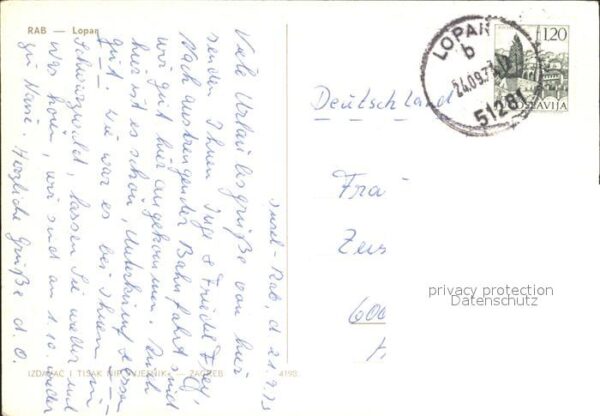 RAB — Lopar
Insel-Rab, d. 21.9.73
Viele Urlaubsgrüße von hier
senden Ihnen Inge & Friedel Frey,
Nach anstrengender Bahnfahrt sind
wir gut hier angekommen. Auch
hier ist es schön, Unterkunft & Essen
gut. Wie war es bei Ihnen im
Schwarzwald, lassen Sie wieder mal
was hören, wir sind am 1.10. wieder
zu Hause. Herzliche Grüße d. O.
IZDAVAČ I TISAK NIP "VJESNIK" — ZAGREB
4193
LOPAR
b
24.09.73
51281
1,20
JUGOSLAVIJA
Deutschland
Fra
Zus
600
privacy protection
Datenschutz